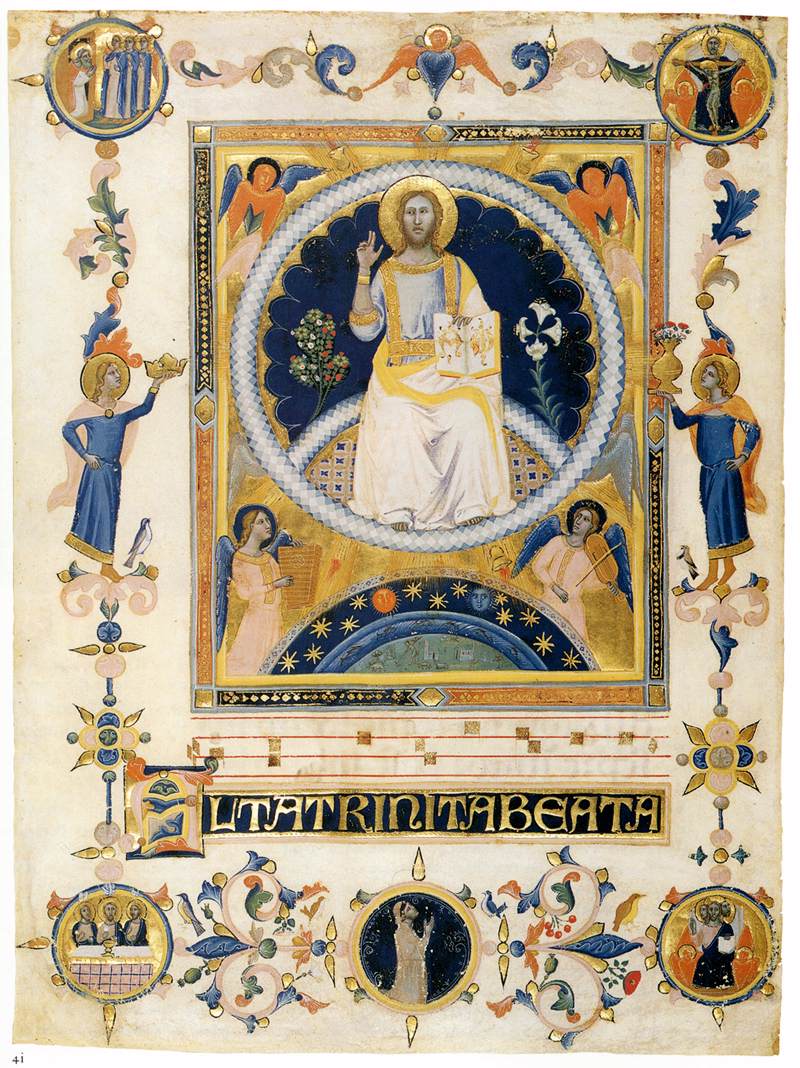 ALTATRINITABEATA
41